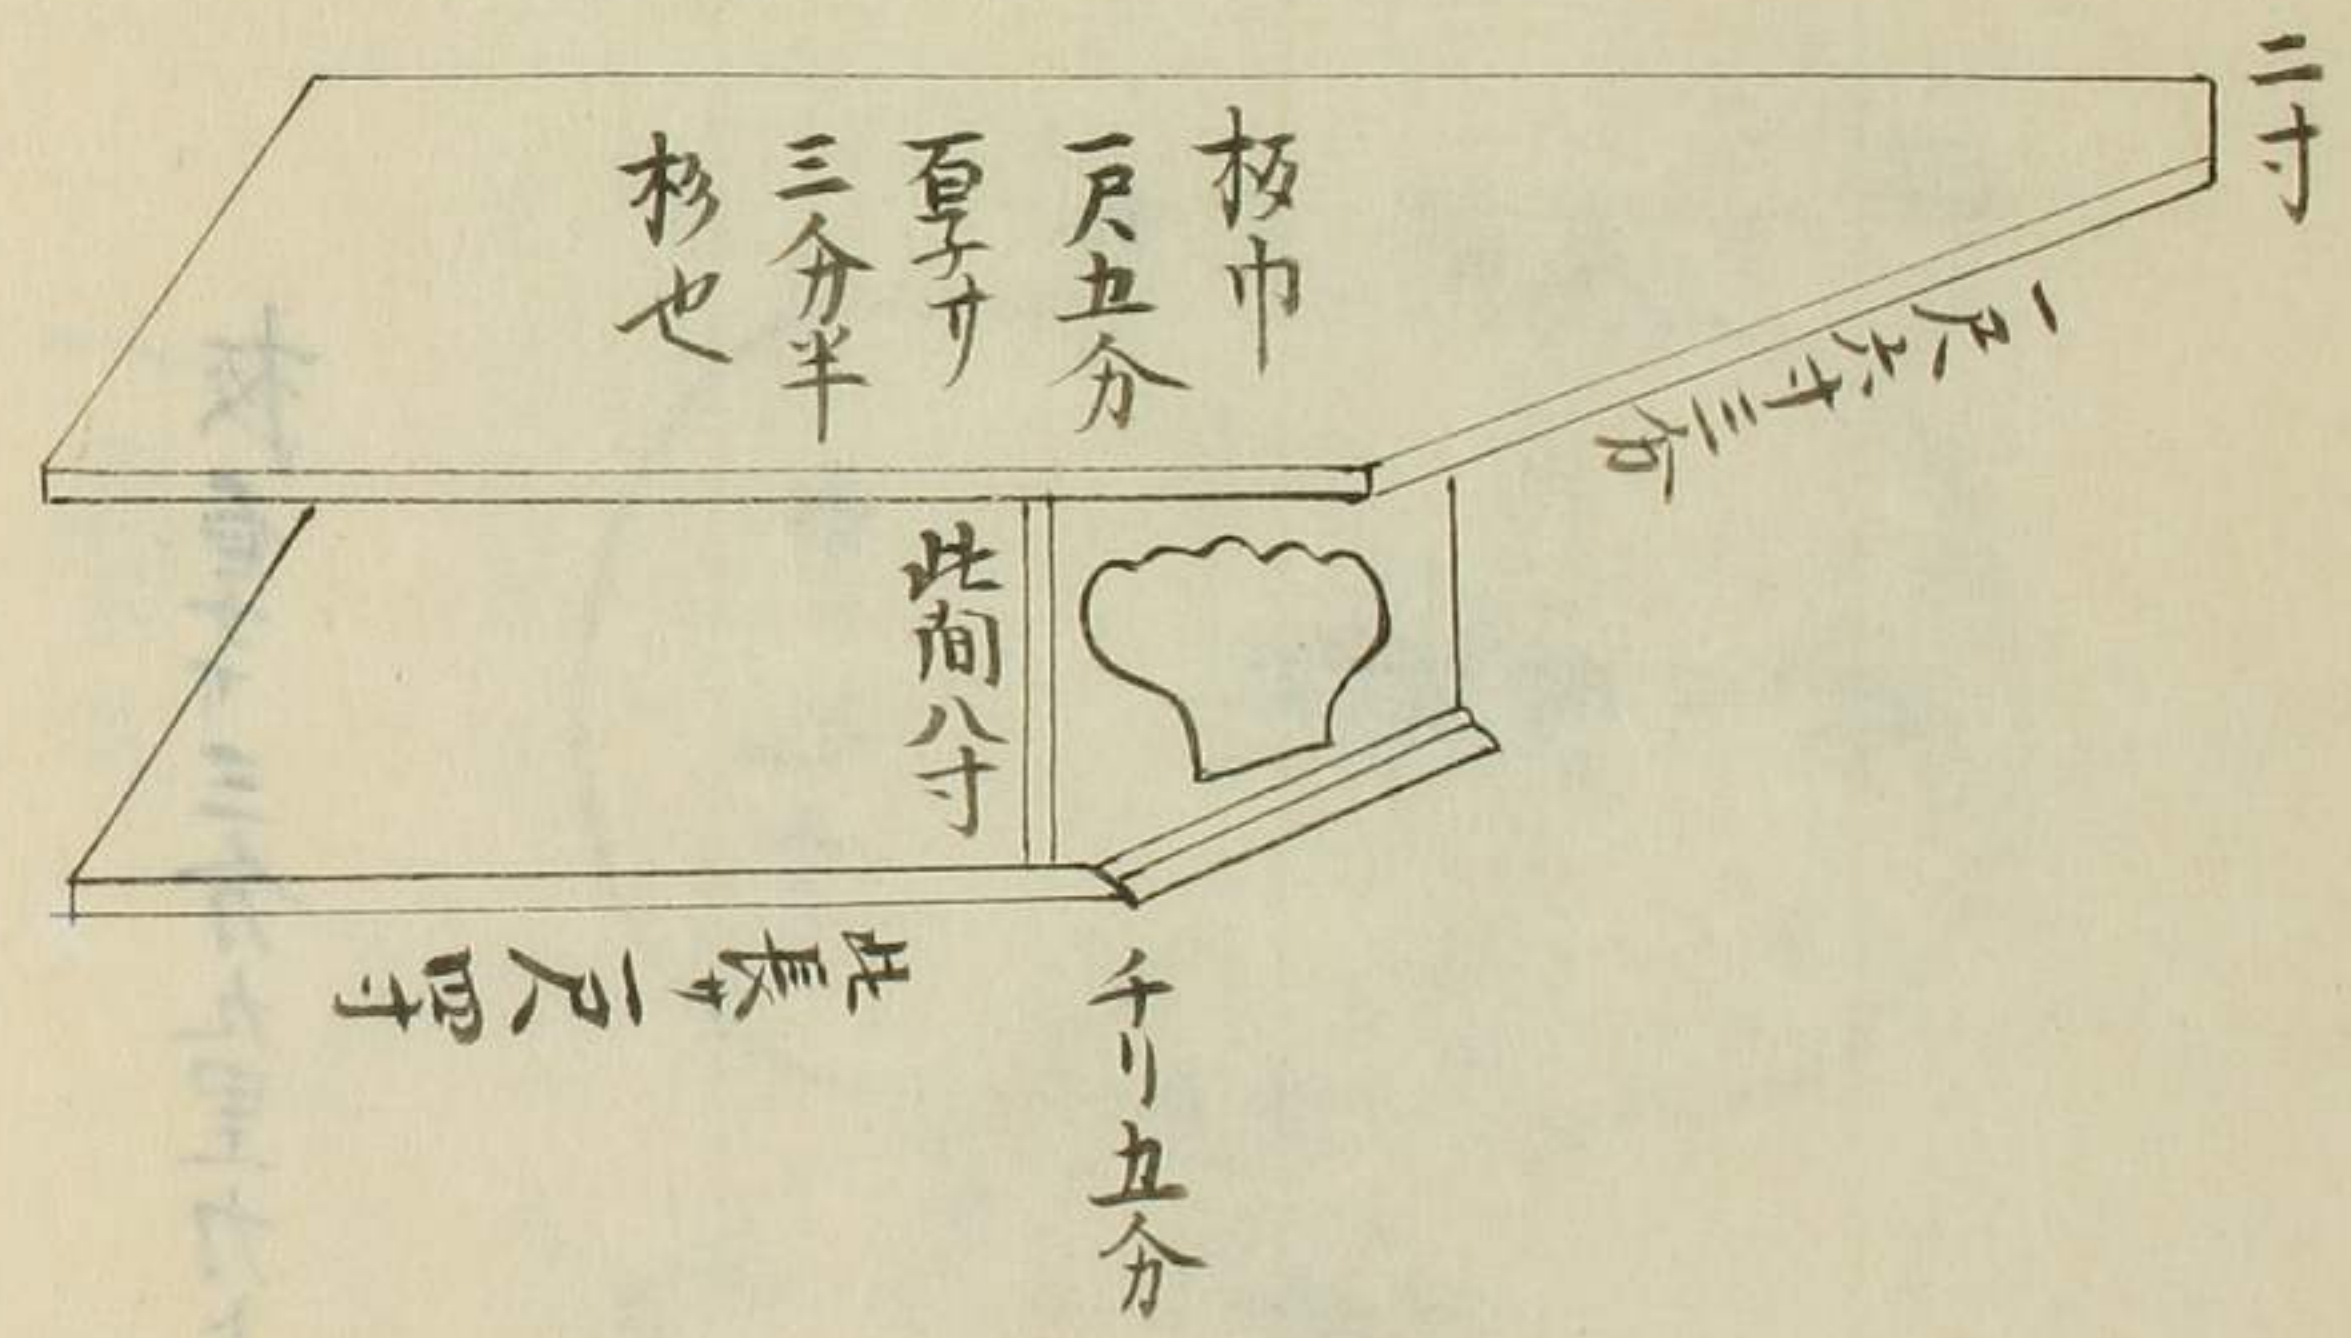 二寸
一尺六寸三分
板巾
一尺五分
厚サ
三分半
杉也
此間八寸
チリ五分
此長サ一尺四寸